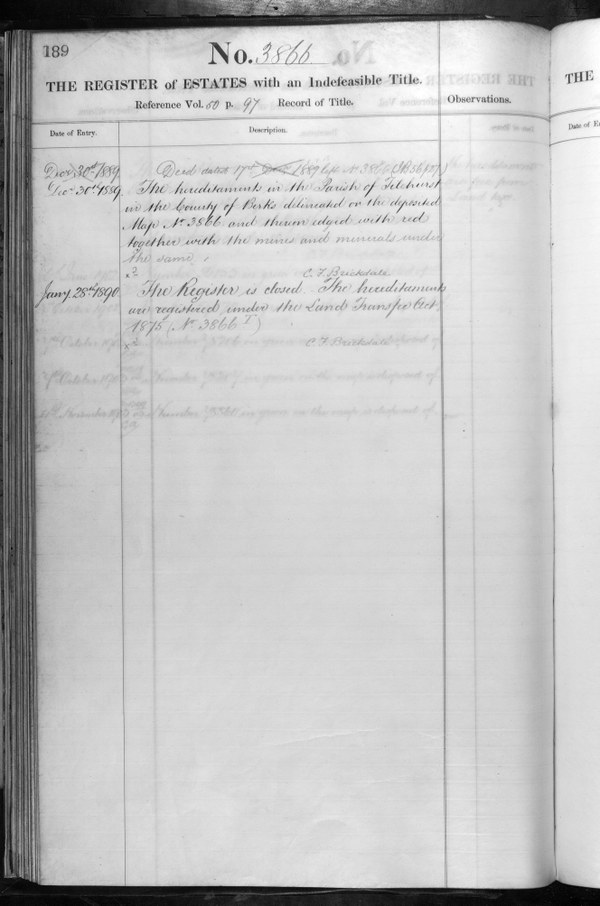 189
No. 3866
THE REGISTER of ESTATES with an Indefeasible Title.
Reference Vol. 50 p. 97 Record of Title.
Observations.
Date of Entry.
Description.
Decr 30th 1889
Deed dated 17th 1889 left No 3866
Decr 30th 1889
The hereditaments in the Parish of Tilehurst
in the County of Berks delineated on the deposited
Map No 3866 and thereon edged with red
together with the mines and minerals under
the same.
C. F. Brickdale
Jany 28th 1890
The Register is closed. The hereditaments
are registered under the Land Transfer Act
1875 (No 3866 T)
C. F. Brickdale
THE
Date of E